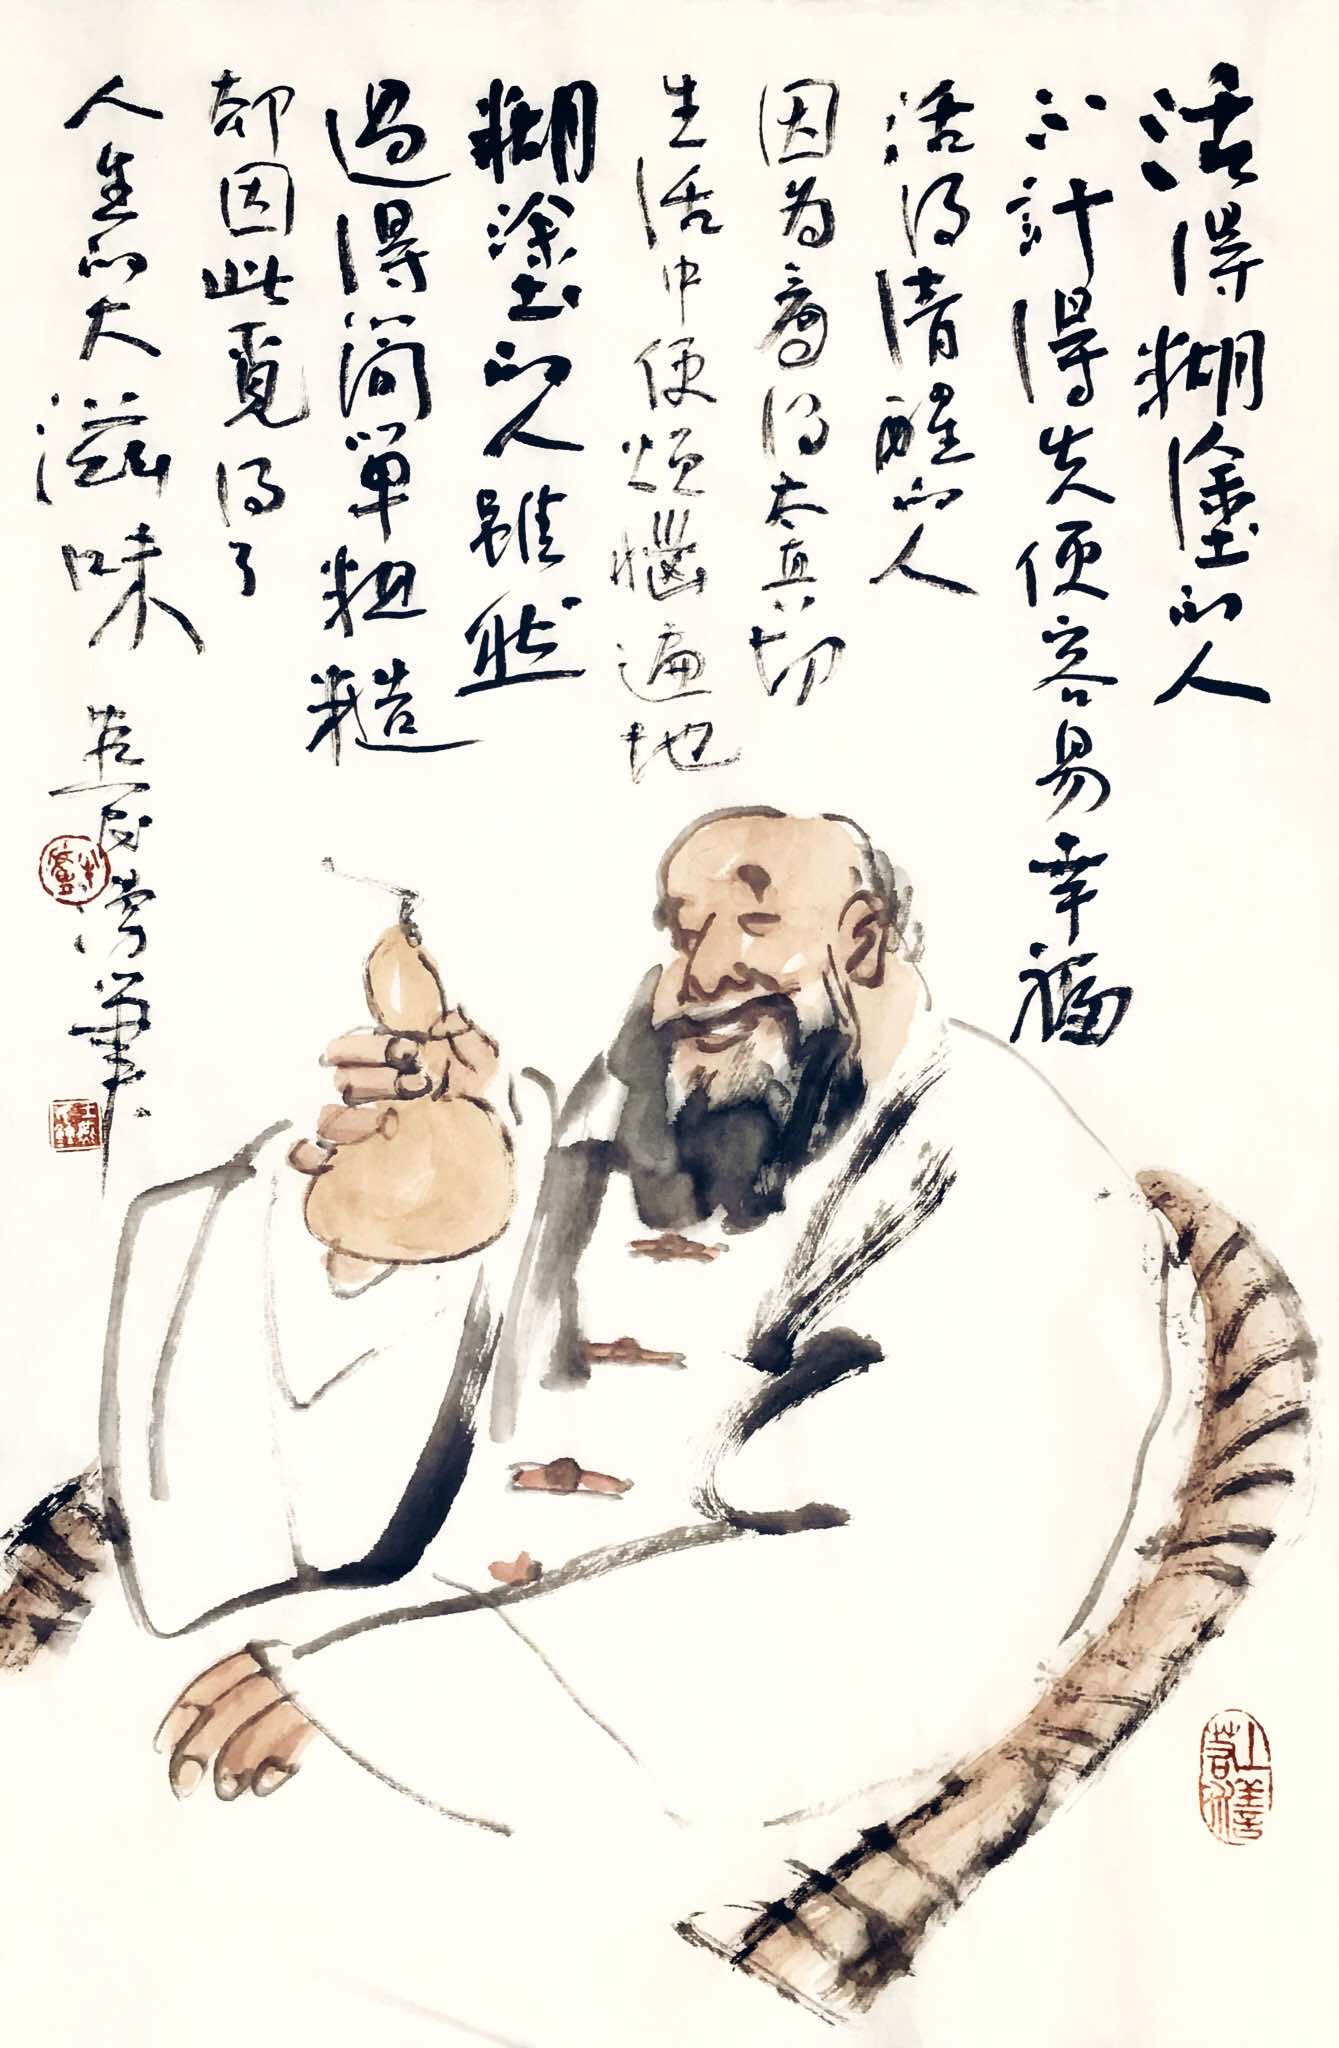 活得糊塗的人
不計得失便容易幸福
活得清醒的人
因为看得太真切
生活中便煩惱遍地
糊塗的人雖然
過得簡單粗糙
却因此覓得了
人生的大滋味
上善若水